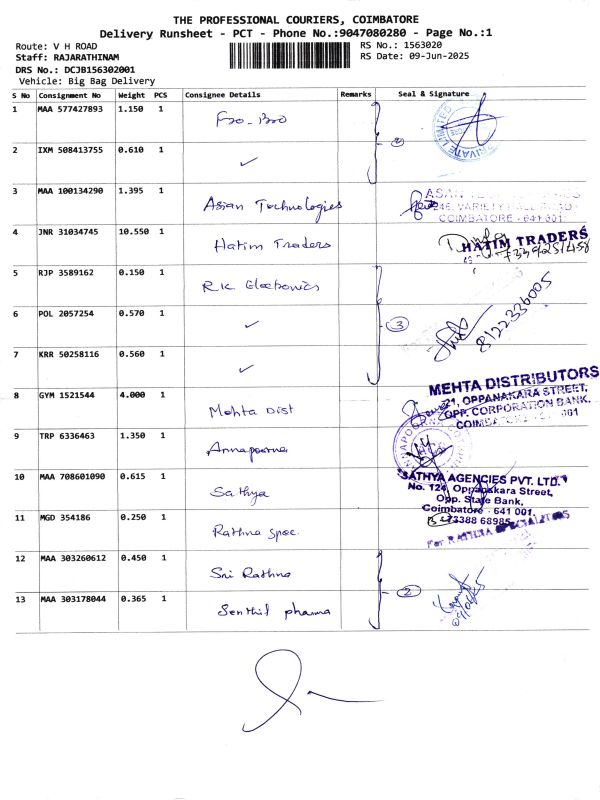 THE PROFESSIONAL COURIERS, COIMBATORE
Delivery Runsheet - PCT - Phone No.:9047080280 - Page No.:1
Route: V H ROAD
RS No.: 1563020
Staff: RAJARATHINAM
RS Date: 09-Jun-2025
DRS No.: DCJB156302001
Vehicle: Big Bag Delivery
S No Consignment No Weight PCS Consignee Details Remarks Seal & Signature
1 MAA 577427893 1.150 1
PRIVATE LIMITED
2 IXM 508413755 0.610 1 ✓
2
3 MAA 100134290 1.395 1 Asian Technologies
COIMBATORE - 641 001
4 JNR 31034745 10.550 1 Hatim Traders
HATIM TRADERS
5 RJP 3589162 0.150 1 RK Electronics
6 POL 2057254 0.570 1 ✓
3
8122336005
7 KRR 50258116 0.560 1 ✓
8 GYM 1521544 4.000 1 Mehta Dist
MEHTA DISTRIBUTORS
21, OPPANAKARA STREET,
OPP. CORPORATION BANK,
9 TRP 6336463 1.350 1 Annapoorna
10 MAA 708601090 0.615 1 Sathya
SATHYA AGENCIES PVT. LTD.
No. 124, Oppanakara Street,
Opp. State Bank,
Coimbatore - 641 001
73388 68985
11 MGD 354186 0.250 1 Rathna Spec
12 MAA 303260612 0.450 1 Sri Rathna
2
13 MAA 303178044 0.365 1 Senthil pharma